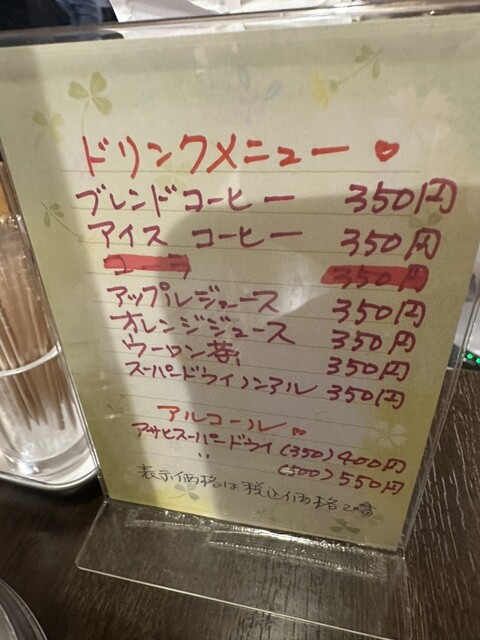 ドリンクメニュー ♥
ブレンドコーヒー 350円
アイス コーヒー 350円
コーラ 350円
アップルジュース 350円
オレンジジュース 350円
ウーロン茶 350円
スーパードウイノンアル 350円
アルコール♥
アサヒスーパードウイ (350) 400円
〃 (500) 550円
表示価格は税込価格